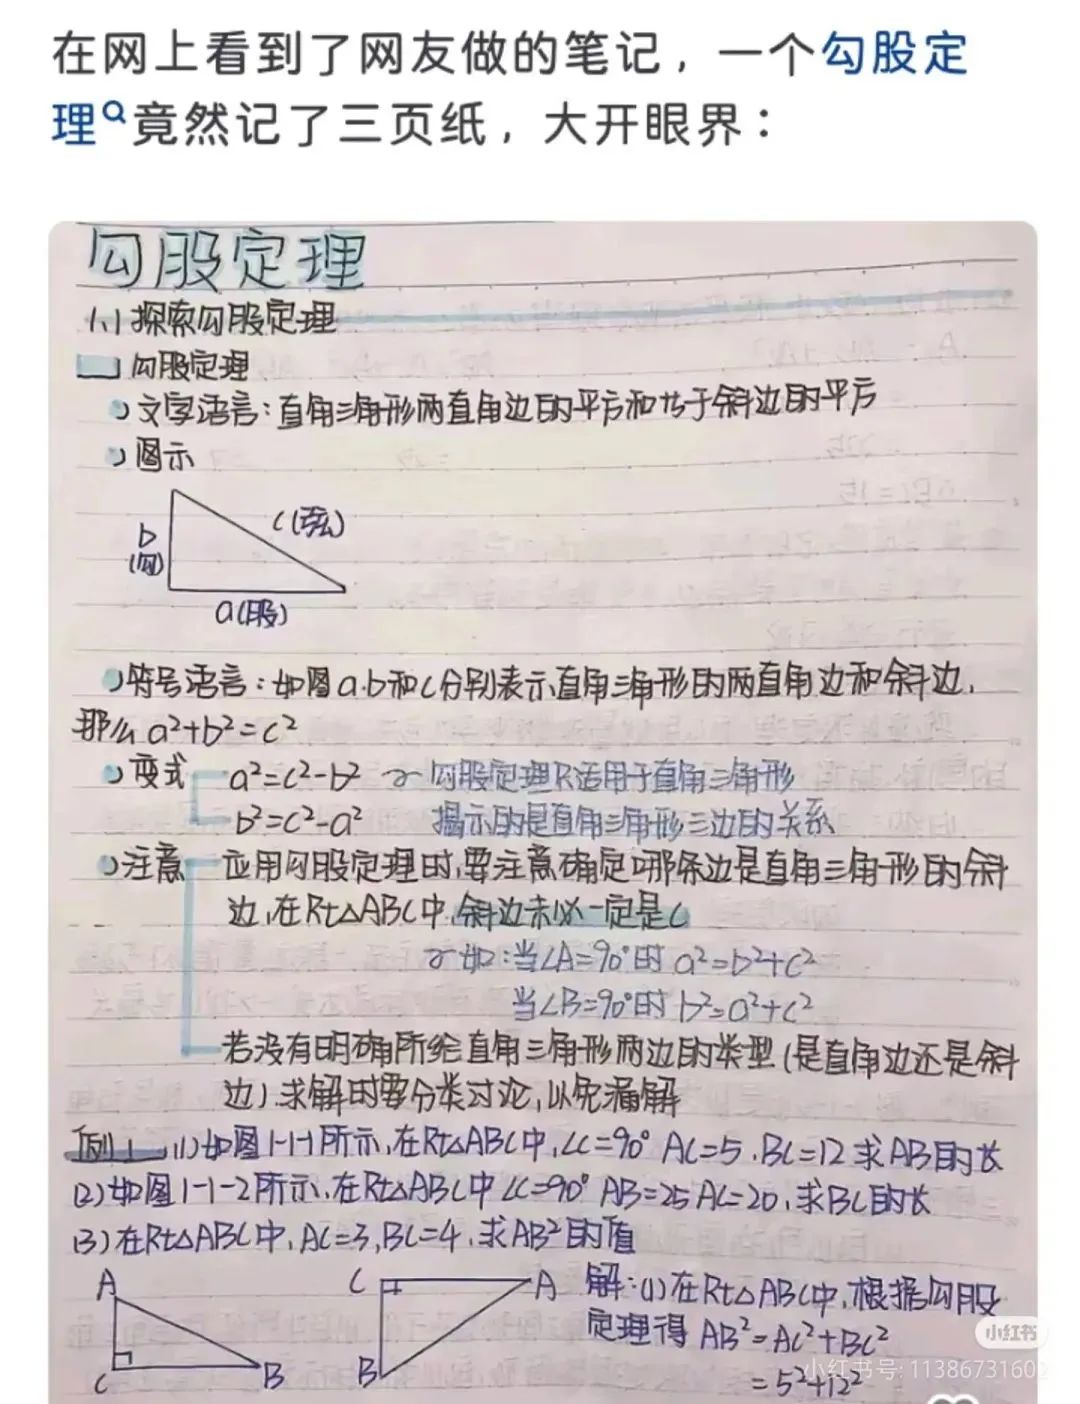 在网上看到了网友做的笔记，一个勾股定
理竟然记了三页纸，大开眼界：
勾股定理
1.1 探索勾股定理
勾股定理
文字语言：直角三角形两直角边的平方和等于斜边的平方
图示
b
(勾)
c(弦)
a(股)
符号语言：如图a.b和c分别表示直角三角形的两直角边和斜边，
那么a²+b²=c²
变式 a²=c²-b² 勾股定理只适用于直角三角形
b²=c²-a² 揭示的是直角三角形三边的关系
注意 应用勾股定理时，要注意确定哪条边是直角三角形的斜
边，在Rt△ABC中，斜边未必一定是c
如：当∠A=90°时 a²=b²+c²
当∠B=90°时 b²=a²+c²
若没有明确所给直角三角形两边的类型(是直角边还是斜
边)，求解时要分类讨论，以免漏解
例1 (1)如图1-1-1所示，在Rt△ABC中，∠C=90° AC=5，BC=12求AB的长
(2)如图1-1-2所示，在Rt△ABC中∠C=90° AB=25 AC=20，求BC的长
(3)在Rt△ABC中，AC=3，BC=4，求AB²的值
A
C
B
C
A
B
解：(1)在Rt△ABC中，根据勾股
定理得 AB²=AC²+BC²
=5²+12²
小红书
小红书号：11386731602